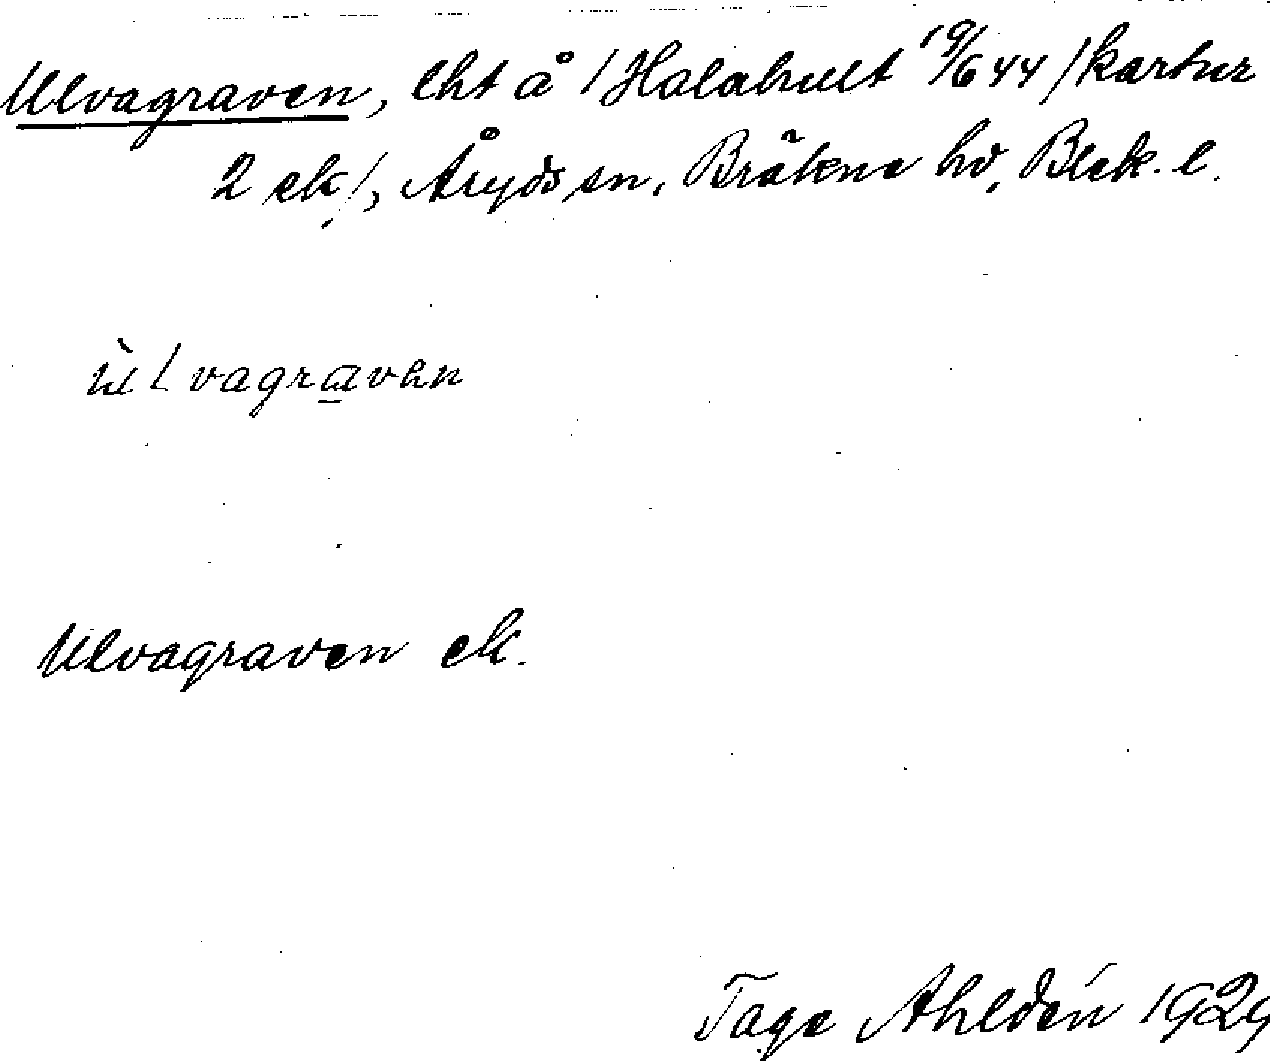 Ulvagraven, lht å /Halabult 19/6 44 /kartur
2 ek/, Åryds sn, Bräkne hd, Blek. l.
ùlvagravən
Ulvagraven ek.
Tage Ahldén 1929